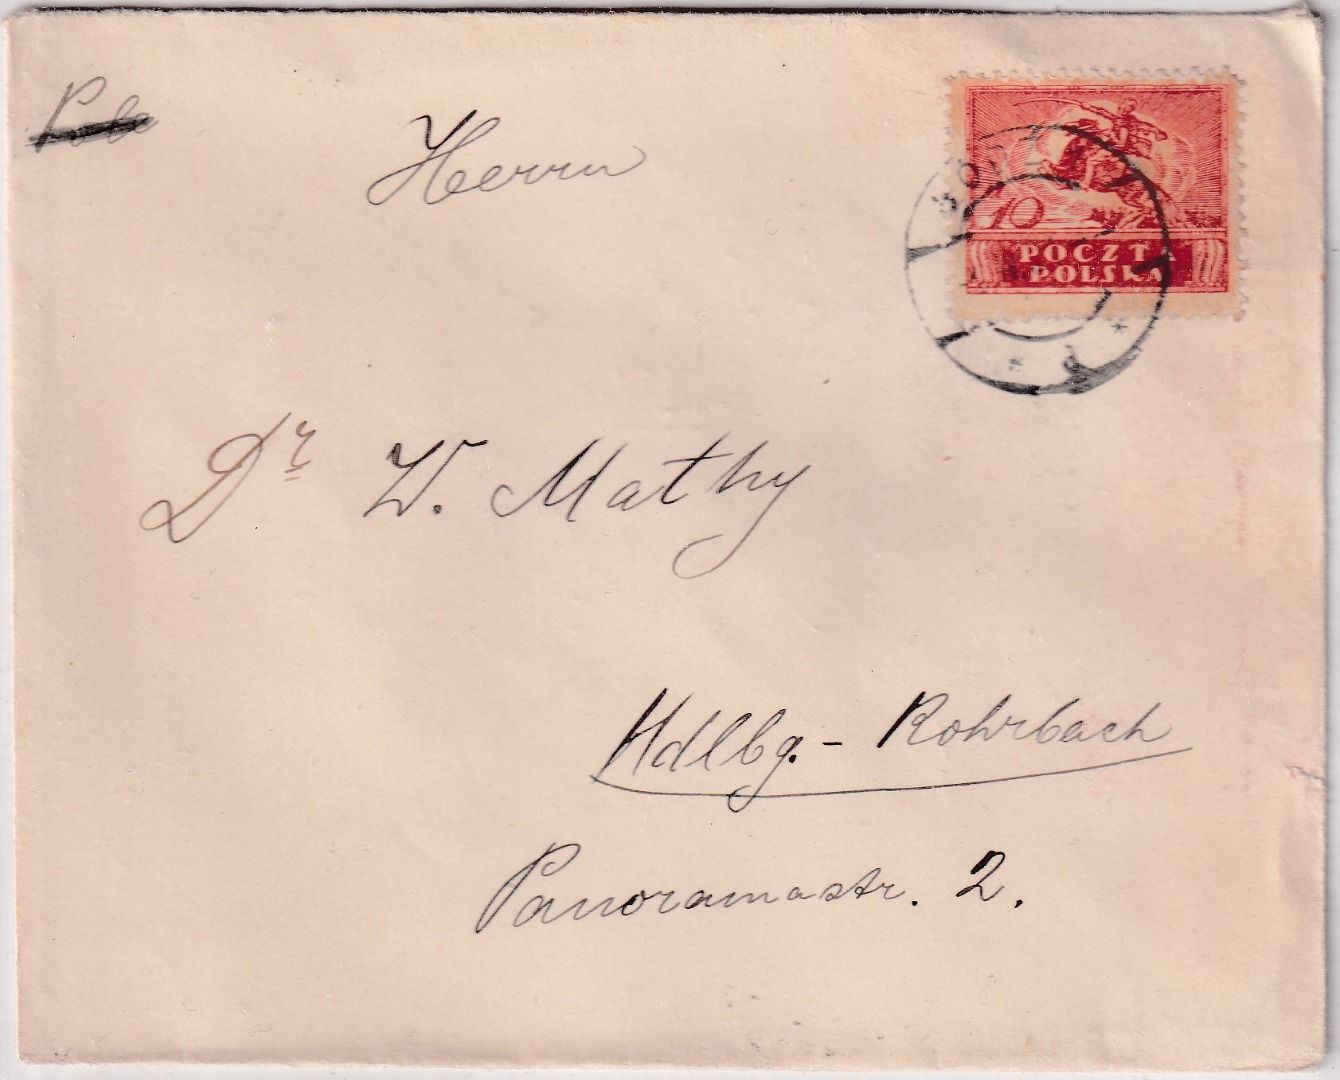 Herrn
10
POCZTA
POLSKA
Dr W. Mathy
Hdlbg. - Rohrbach
Panoramastr. 2.